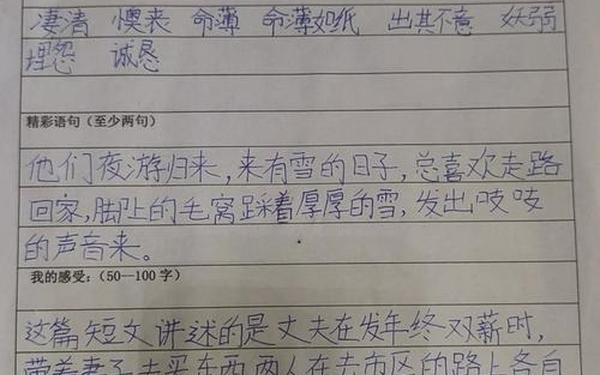 凄清 懊丧 命薄 命薄如纸 出其不意 妖弱
埋怨 诚恳
精彩语句（至少两句）
他们夜游归来,来有雪的日子,总喜欢走路
回家,脚上的毛窝踩着厚厚的雪,发出吱吱
的声音来。
我的感受：（50--100字）
这篇短文讲述的是丈夫在发年终双薪时,
带着妻子去买东西,两人在去市区的路上各自